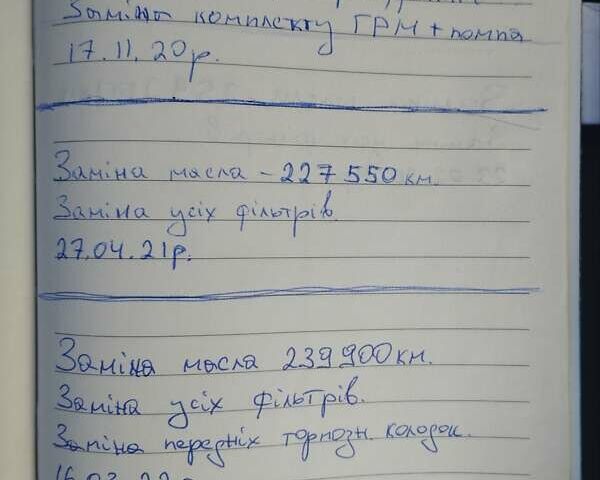 Заміна комплекту ГРМ + помпа
17.11.20р.
Заміна масла - 227 550 км.
Заміна усіх фільтрів.
27.04.21р.
Заміна масла 239 900 км.
Заміна усіх фільтрів.
Заміна передніх тормозн. колодок.